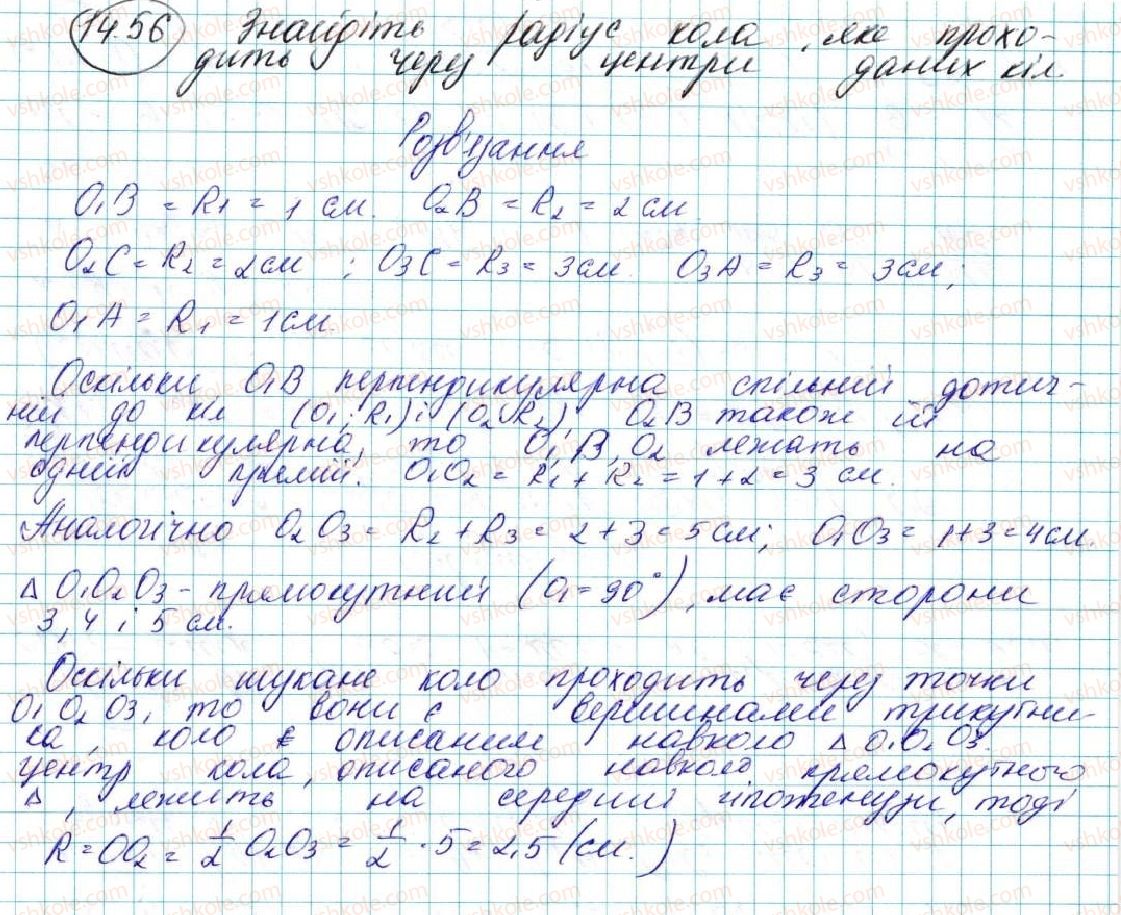 14.56 Знайдіть радіус кола, яке прохо-
дить через центри даних кіл.
Розв'язання
O₁B = R₁ = 1 см. O₂B = R₂ = 2 см.
O₂C = R₂ = 2 см ; O₃C = R₃ = 3 см. O₃A = R₃ = 3 см;
O₁A = R₁ = 1 см.
Оскільки O₁B перпендикулярна спільній дотич-
ній до кіл (O₁; R₁) і (O₂; R₂), O₂B також їй
перпендикулярна, то O₁, B, O₂ лежать на
одній прямій. O₁O₂ = R₁ + R₂ = 1 + 2 = 3 см.
Аналогічно O₂O₃ = R₂ + R₃ = 2 + 3 = 5 см; O₁O₃ = 1 + 3 = 4 см.
Δ O₁O₂O₃ - прямокутний (O₁ = 90°), має сторони
3, 4 і 5 см.
Оскільки шукане коло проходить через точки
O₁ O₂ O₃, то вони є вершинами трикутни-
ка, коло є описаним навколо Δ O₁O₂O₃.
Центр кола, описаного навколо прямокутного
Δ, лежить на середині гіпотенузи, тоді
R = OO₂ = 1/2 O₂O₃ = 1/2 · 5 = 2,5 (см.)